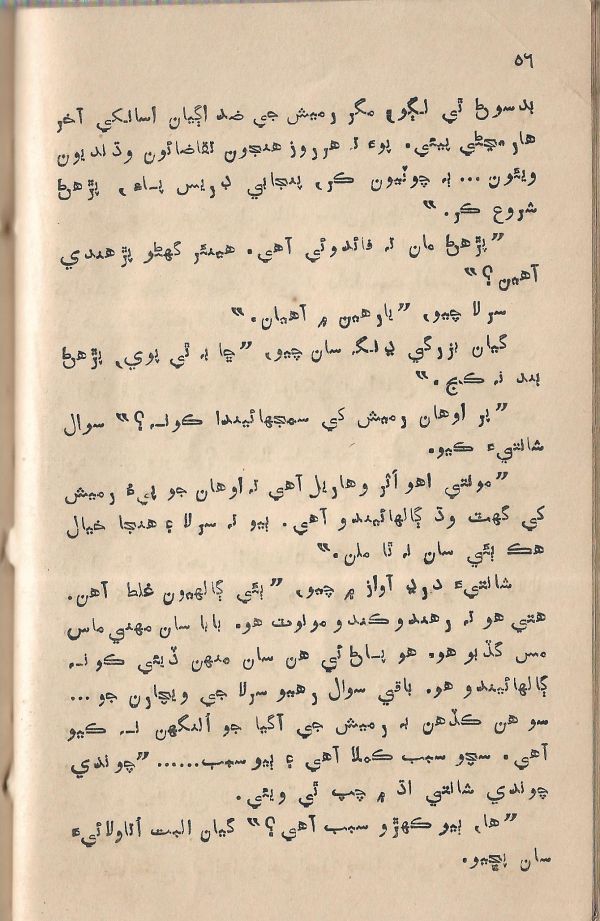 ٥٦
بدسورت ٿي لڳو، مگر رميش جي ضد اڳيان اسانکي آخر
هار مڃڻي پيئي. پوءِ تہ هرروز هنجون تقاضائون وڌنديون
ويئون ... بہ چوٽيون ڪر، پنجابي ڊريس پاءِ، پڙهڻ
شروع ڪر.“
”پڙهڻ مان تہ فائدوئي آهي. هينئر گهڻو پڙهندي
آهين؟“
سرلا چيو، ”يارهين ۾ آهيان.“
گيان بزرگي ڍنگہ سان چيو، ”ڇا بہ ٿي پوي، پڙهڻ
بند نہ ڪج.“
”پر اوهان رميش کي سمجهائيندا ڪونہ؟“ سوال
شانتيءَ ڪيو.
”مونتي اهو اثر وهاريل آهي تہ اوهان جو پيءُ رميش
کي گهٽ وڌ ڳالهائيندو آهي. ٻيو تہ سرلا ۽ هنجا خيال
هڪ ٻئي سان نہ ٿا ملن.“
شانتيءَ درد آواز ۾ چيو، ”ٻئي ڳالهيون غلط آهن.
هتي هو تہ رهندو ڪندو مونوت هو. بابا سان مهني ماس
مس گڏبو هو. هو پاڻ ئي هن سان منهن ڏيئي ڪونہ
ڳالهائيندو هو. باقي سوال رهيو سرلا جي ويچارن جو ...
سو هن ڪڏهن بہ رميش جي آگيا جو اُلنگهن نہ ڪيو
آهي. سچو سبب ڪملا آهي ۽ ٻيو سبب......“ چوندي
چوندي شانتي اڌ ۾ چپ ٿي ويئي.
”ها، ٻيو ڪهڙو سبب آهي؟“ گيان البت اُتاولائيءَ
سان پڇيو.